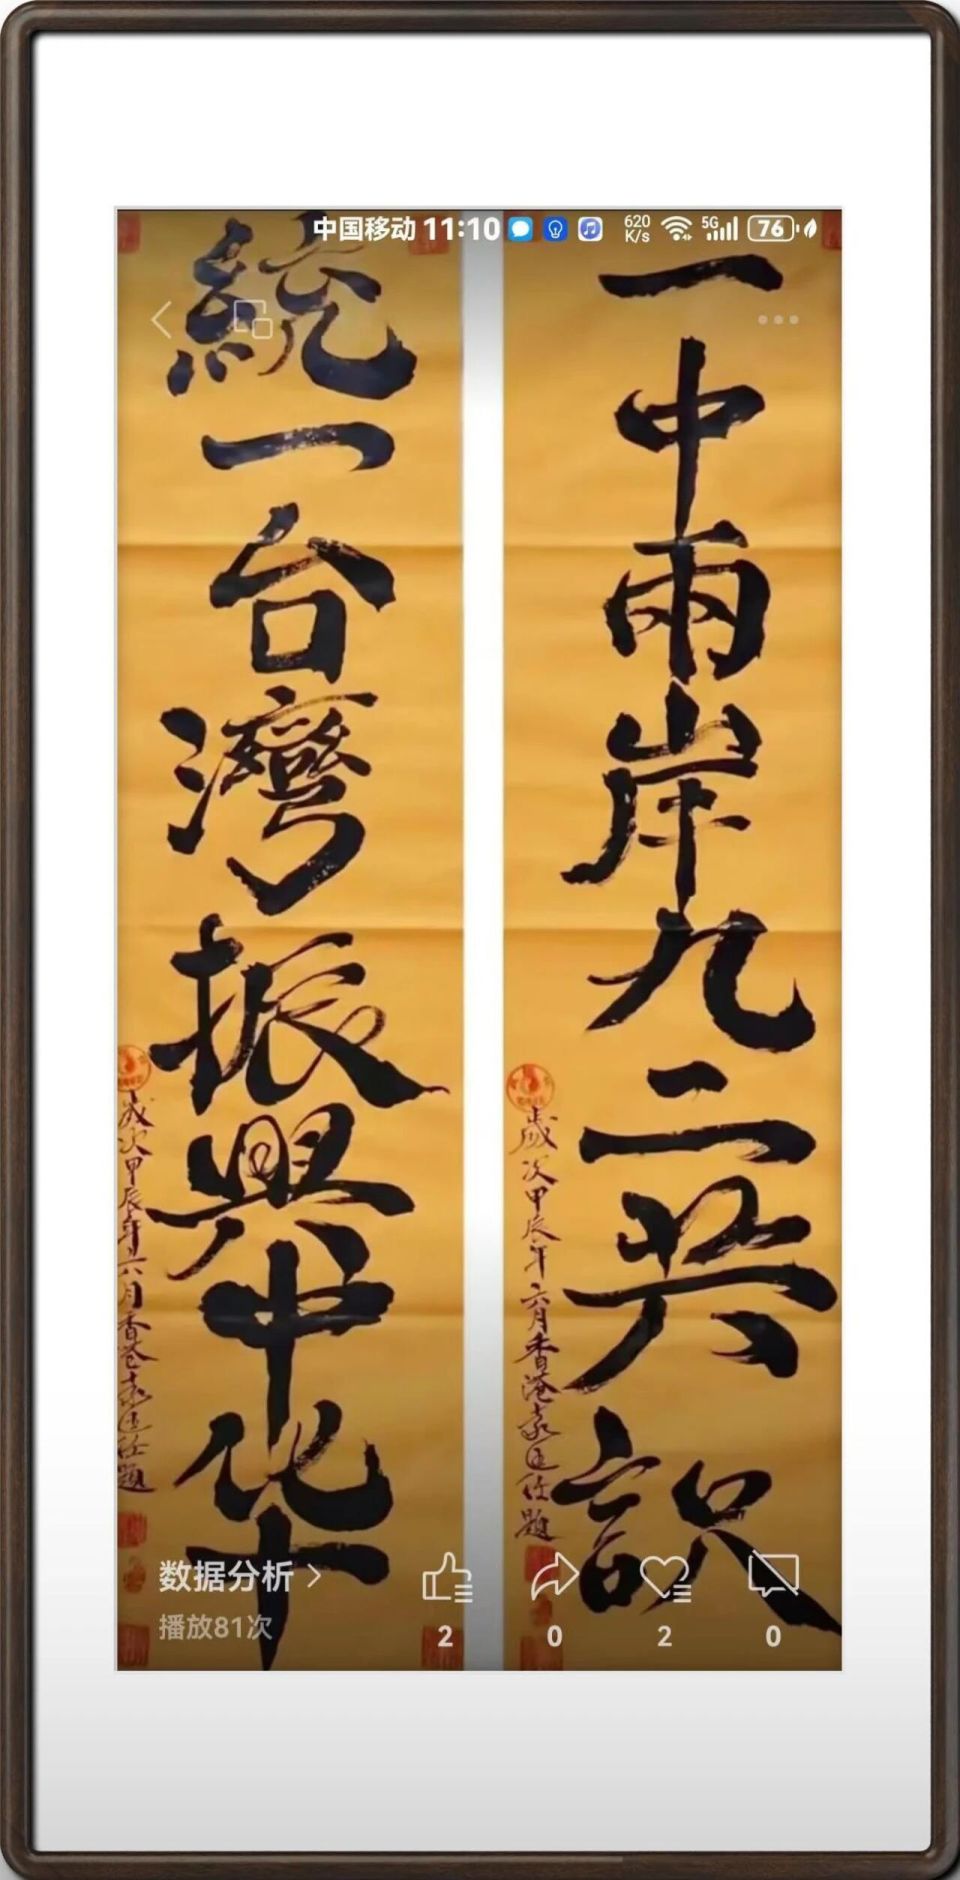 中国移动 11:10 620 K/s 5G 76
一中兩岸九二共識
歲次甲辰年六月香港袁進任題
統一台灣振興中华
歲次甲辰年六月香港袁進任題
数据分析
播放81次
2 0 2 0